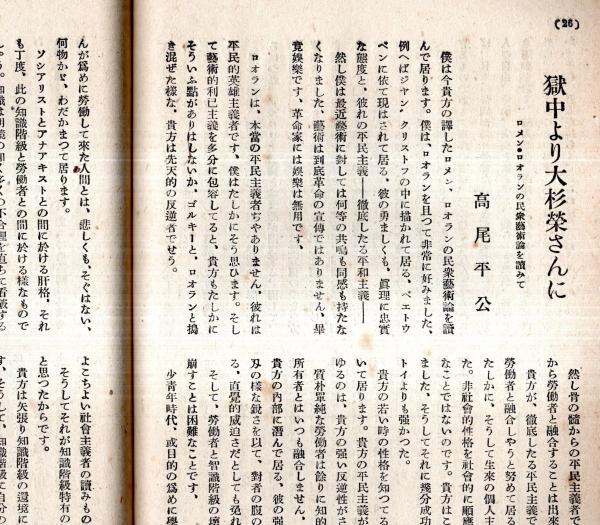 (26)
獄中より大杉榮さんに
ロメン・ロオランの民衆藝術論を讀みて
高尾平公
僕は今貴方の譯したロメン、ロオランの民衆藝術論を讀
んで居ります。僕は、ロオランを且つて非常に好みました、
例へばジヤン・クリストフの中に描かれて居る、ベエトウ
ベンに依て現はされて居る、彼の勇ましくも、眞理に忠實
な態度と、彼れの平民主義――徹底したる平和主義――
然し僕は最近藝術に對しては何等の共鳴も同感も持たな
くなりました、藝術は到底革命の宣傳ではありません、畢
竟娯樂です、革命家には娯樂は無用です。
ロオランは、本當の平民主義者ぢやありません、彼れは
平民的英雄主義者です、僕はたしかにそう思ひます。そし
て藝術的利己主義を多分に包容してると、貴方もたしかに
そういふ點がありはしないか、ゴルキーと、ロオランと搗
き混ぜた樣な、貴方は先天的の反逆者でせう。
然し骨の髓からの平民主義者で
から勞働者と融合することは出來
貴方が、徹底したる平民主義
勞働者と融合しやうと努めて居
たしかに、そうして生來の個人主
た。非社會的性格を社會的に順應
なことではないのです。貴方はこ
ました、そうしてそれに幾分成功
トイよりも强かつた。
貴方の若い時の性格を知つてる
いて居ります。貴方の平民主義が
ゆるのは、貴方の强い反逆性がさ
質朴單純な勞働者は餘りに知的
所有者とはいつも融合しません。
貴方の內部に潛んで居る、彼の强
刄の樣な銳さを以て、對者の腹の
る、直覺的威迫さだとしても免れ
そして、勞働者と智識階級の壞
崩すことは困難なことです。
少青年時代、或目的の爲めに學
んが爲めに勞働して來た人間とは、悲しくも、そぐはない、
何物かゞ、わだかまつて居ります。
ソシアリストとアナアキストとの間に於ける肝格、それ
も丁度、此の知識階級と勞働者との間に於ける樣なもので
よこちよい社會主義者の讀みもの
そうしてそれが知識階級特有の
と思つたからです。
貴方は矢張り知識階級の還境に